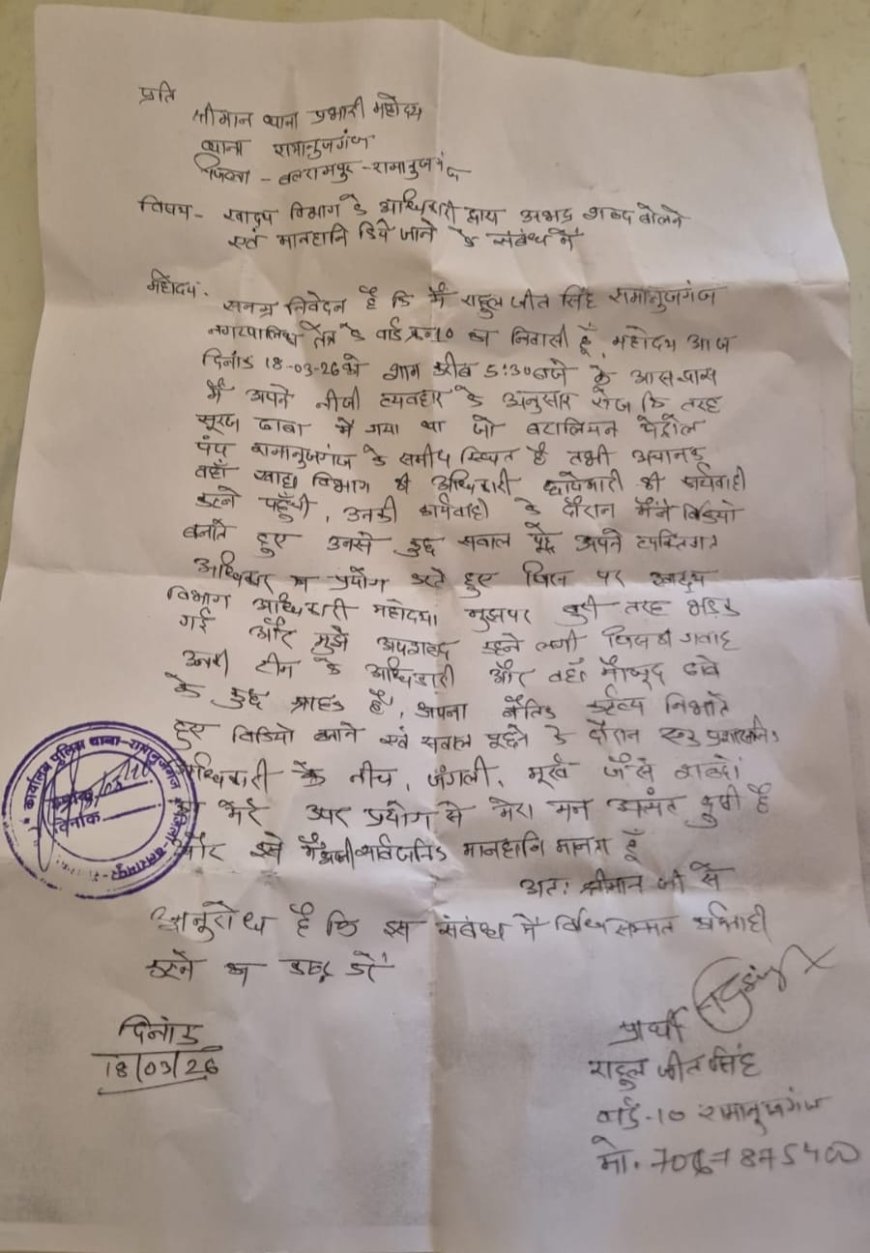 प्रति
श्रीमान थाना प्रभारी महोदय
थाना रामानुजगंज
जिला - बलरामपुर - रामानुजगंज
विषय - खाद्य विभाग के अधिकारी द्वारा अभद्र शब्द बोलने
एवं मानहानि किये जाने के संबंध में
महोदय,
सनम्र निवेदन है कि मैं राहुल जीत सिंह रामानुजगंज
नगरपालिका क्षेत्र के वार्ड क्र. 10 का निवासी हूँ, महोदय आज
दिनांक 18-03-26 को शाम करीब 5:30 बजे के आसपास
मैं अपने नीजी व्यवहार के अनुसार रोज कि तरह
सूरज ढाबा में गया था जो बटालियन पेट्रोल
पंप रामानुजगंज के समीप स्थित है तभी अचानक
वहाँ खाद्य विभाग की अधिकारी छापेमारी की कार्यवाही
करने पहुँची, उनकी कार्यवाही के दौरान मैंने विडियो
बनाते हुए उनसे कुछ सवाल पूछे अपने व्यक्तिगत
अधिकार का प्रयोग करते हुए जिस पर खाद्य
विभाग अधिकारी महोदया मुझपर बुरी तरह भड़क
गई और मुझे अपशब्द कहने लगी जिसकी गवाह
उनकी टीम के अधिकारी और वहाँ मौजूद ढाबे
के कुछ ग्राहक है, अपना नैतिक कर्तव्य निभाते
हुए विडियो बनाने एवं सवाल पूछने के दौरान एक प्रशासनिक
अधिकारी के नीच, जंगली, मूर्ख जैसे शब्दों
मेरे उपर प्रयोग से मेरा मन अशांत दुखी है
और इसे मैं अपनी सार्वजनिक मानहानि मानता हूँ
अतः श्रीमान जी से
अनुरोध है कि इस संबंध में विधि सम्मत कार्यवाही
करने का कष्ट करें
दिनांक
18/03/26
प्रार्थी
राहुल जीत सिंह
वार्ड-10 रामानुजगंज
मो.
कार्यालय पुलिस थाना-रामानुजगंज जिला-बलरामपुर-
क्रमांक
दिनांक